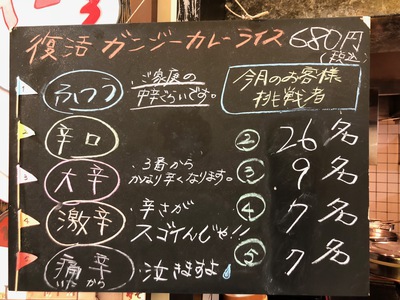 復活 ガンジーカレーライス 680円
(税込)
1 ふつう ・ご家庭の
中辛ぐらいです。
今月のお客様
挑戦者
2 辛口 ② 26名
3 大辛 ・3番から
かなり辛くなります。 ③ 9名
4 激辛 ・辛さが
スゴイんじゃ!! ④ 7名
痛辛 いたから ・泣きますよ ⑤ 7名